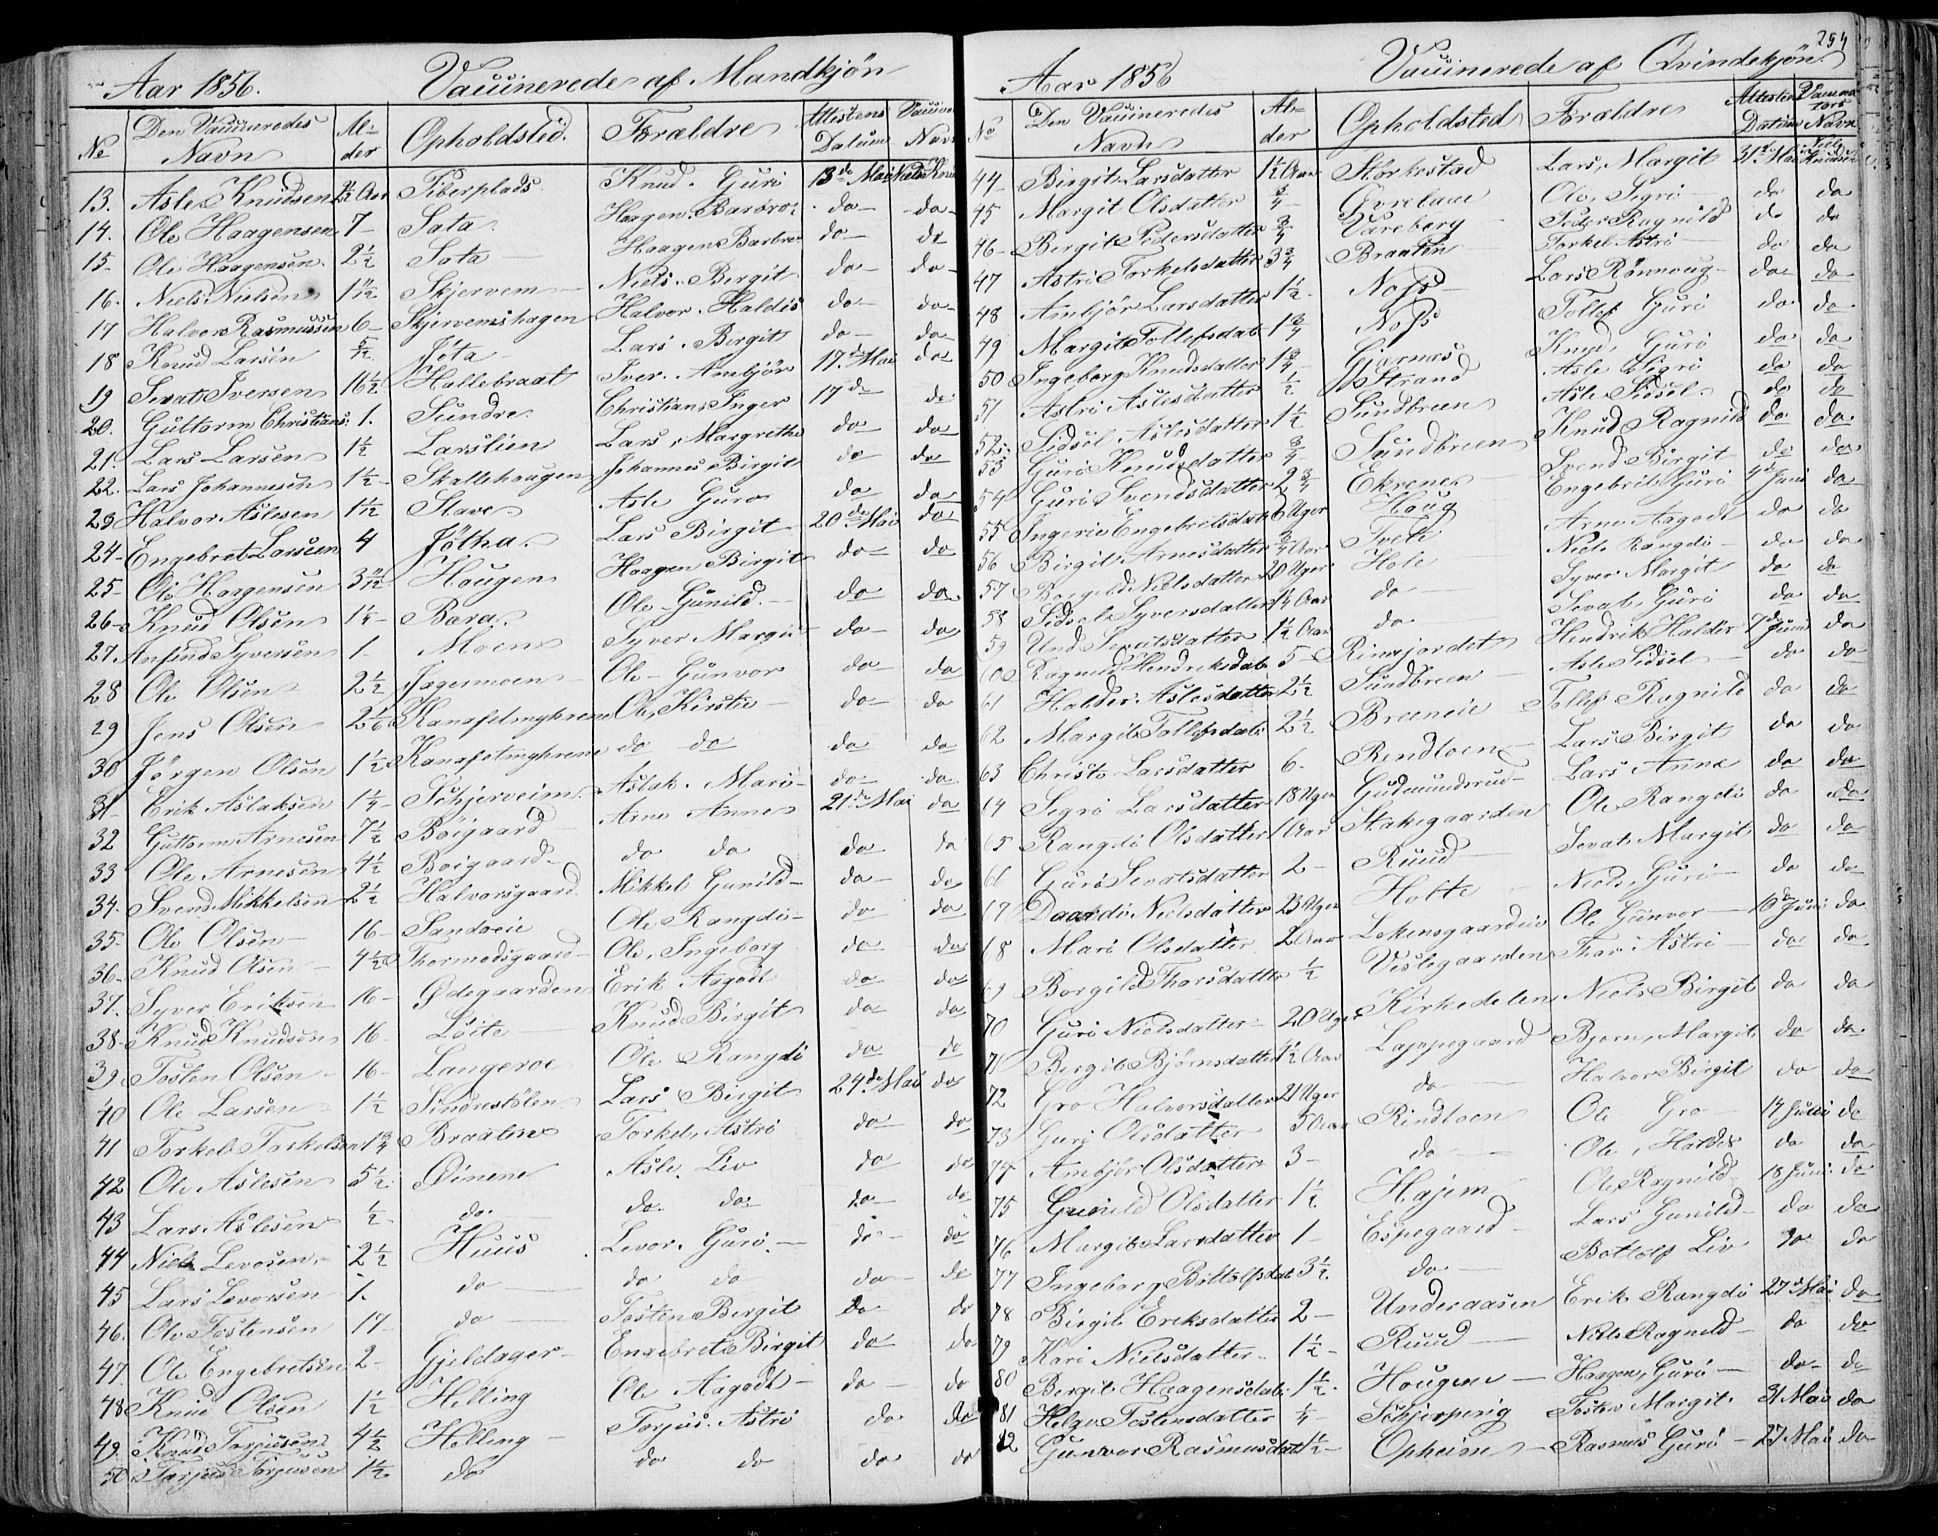 Aar 1856. Vaccinerede af Mandkjøn
No Den Vaccineredes Navn Alder Opholdsted. Forældre Attestens Datum Vaccin Navn
13. Asle Knudsen Aar Fiberplads Knud. Guri 13de Mai Niels
14. Ole Haagensen 7 - Sata Haagen. Barbro do - do -
15. Ole Haagensen. 2 1/2 Sata - Haagen Barbro do - do
16. Niels Nielsen 1 11/12 Skjervem - Niels. Birgit do - do -
17 Halvor Rasmussen 6 - Skjervemshagen Halvor. Haldis do - do
18 Knud Larsen 5/12 Jøta Lars. Bergit do - do
19 Sevat Iversen 16 1/2 Hallebraat Iver. Ambjør 17de Mai do
20. Guttorm Christians: 1. Sundre Christian. Inger 17de do
21. Lars Larsen 1 1/2 Larslien Lars, Margrethe do do
22. Lars Johannesen 1 1/2 - Skallehougen Johannes Birgit do do
23 Halvor Aslesen 1 1/12 Slave Asle Guro do do
24 - Engebret Larsen 4 Jøtha. Lars Birgit 20de Mai do
25 - Ole Haagensen 3 11/12 Haugen Haagen Birgit do - do
26 - Knud Olsen 1 1/4 - Bara. Ole Gunild. - do do
27. Anfind Syversen 1 - Moen Syver Margit do - do
28 Ole Olsen 2 1/2 Jegermoen - Ole - Gunvor do - do
29 Jens Olsen 2 1/6 Ole, Kirstie - do - do
30 Jørgen Olsen 1 1/2 do do do do
31 - Erik Aslaksen 1 1/4 - Schjerveim Aslak. Mari - do - do
32 Guttorm Arnesen 7 1/2 Boigaard Arne Anne 21de Mai do
33 Ole Arnesen 4 1/2 Boigaard - do do do do
34. Svend Mikkelsen 2 1/2 Halvorsgaard Mikkel Gunild - do - do
35 - Ole Olsen - 16 - Sandoeie Ole Rangdi - do do
36 - Knud Olsen - 4 1/2 Thormodsgaard - Ole, Ingeborg do do
37. Syver Eriksen 16 - Ødegaarden Erik Aagodt do do
38 - Knud Knudsen 16 - Løite - Knud Birgit do do
39. Tosten Olsen - 16 - Langeroe Ole Rangdi do do
40 Ole Larsen 1 1/2 Sindrestølen Lars Birgit 24de Mai do
41 Torkel Torkelsen 1 3/4 Braaten Torkel, Astri do do
42 Ole Aslesen 5 1/2 Dimene Asle. Liv do do
43 Lars Aslesen 1/2 do. do. do do - do
44 Niels Levorsen. - 2 1/2 Huus Levor. Guri. - do - do
45 Lars Levorsen 1. do - do do do - do
46. Ole Tostensen 17 - do - Tosten Bergit do do
47. Ole Engebretsen 2 - Gjeldager - Engebret Birgit do - do
48 Knud Olsen 1 1/2 Helling Ole Aagodt - do - do
49. Knud Torjusen 4 1/2 Helling - Torjus. Astri do do
50 Torjus Torjusen 1 1/2 do do do do do
254
Aar 1856 Vaccinerede af Qvindekjøn
No Den Vaccineredes Navn Alder Opholdsted Forældre Attestens Datum Vaccinators Navn
44 - Birgit Larsdatter 1 1/2 Aar Storkestad Lars, Margit 31te Mai
45 Margit Olsdatter 3/4 Ole, Sigri - do do
46 - Bergit Pedersdatter 3/4 Vareberg - Peder Ragnild do do
47 Astri Torkelsdatter 3 3/4 Braaten Torkel Astri - do do
48 Ambjør Larsdatter 1 1/2 - Noss - Lars Rønnoug - do - do -
49 Margit Tollefsdat 1 3/4 Noss Tollef Guri do do
50 Ingeborg Knudsdatter 1 3/4 - Gjernæs Knud, Guri do do
51 Astri Aslesdatter 1/2 Strand Asle Sigri do do
52. Sidsel Aslesdatter 1 1/2 Sundbreen Asle Sidsel. do do
53 Guri Knudsdatter 3/4 - Sundbreen Knud Ragnild do do
54 Guri Svendsdatter 2 3/4 Ekrene Svend Birgit - do do
55 Ingerie Engebretsdat 6 Uger Houg Engebret Guri 4de Juni do
56 Birgit Arnesdatter 3/4 Aar Tveit Arne Aagodt do do
57 Borgild Nielsdatter 20 Uger Hole Niels Rangdi - do do
58 Sidsel Syversdatter 1 1/4 Aar do - Syver Margit do do
59 Und Sevatsdatter 1 1/2 Aar do - Sevat, Guri do do
60 Ragnild Hendriksdat 5 - Rimsjordet Hendrik Haldis 7de Juni do
61 Haldis Aslesdatter 2 1/2 Sundbreen - Asle Sidsel - do do
62 Margit Tollefsdat 2 1/2 Breeneie Tollef Ragnild do do
63 Christi Larsdatter 6. Rendloen - Lars Birgit do do
64 Sigri Larsdatter 18 Uger Gudmundsrud - Lars Anne do do
65 Rangdi Olsdatter 1 Aar Stakegaarden Ole Rangdi do do
66 Guri Sevatsdatter 2 - Ruud - Sevat Margit do do
67 Daardi Nielsdatter 23 Uger Holte - Niels, Guri - do do
68 Mari Olsdatter 2 Aar Lekensgaardeie Ole Gunvor - 10de Juni do
69 Borgild Thorsdatter 1/2 Veslegaarden Thor Astri - do do
70 Guri Nielsdatter - 20 Uger Kirkedelen Niels Birgit do do
71 Bergit Bjørnsdatter 4 1/2 Aar Lappegaard Bjørn, Margit do do
72 Gro Halvorsdatter 21 Uger do - Halvor Birgit do do
73 Guri Olsdatter 5 Aar Rindloen Ole Gro - 14 Juni do
74 Ambjør Olsdatter 3 - do - Ole, Haldis do do
75 Gunild Olsdatter 1 1/2 Hajem Ole Ragnild 18 Juni do
76 Margit Larsdatter 1 - Espegaard - Lars Gunild - do do
77 Ingeborg Bottolfsdat 3 1/2. do - Bottolf Liv do do
78 Birgit Eriksdatter 2 - Underaasen Erik Rangdi 27de Mai do
79 Kari Nielsdatter - 1 1/2 - Ruud - Niels Ragnild - do do
80 Bergit Haagensdat 1 1/2. Hougene - Haagen, Guri - do - do
81 Helge Tostensdatter 1/4 - Schjerping Tosten Margit 31 Mai do
82 Gunvor Rasmusdat 1 1/2 - Opheim - Rasmus Guri - 27 Mai do